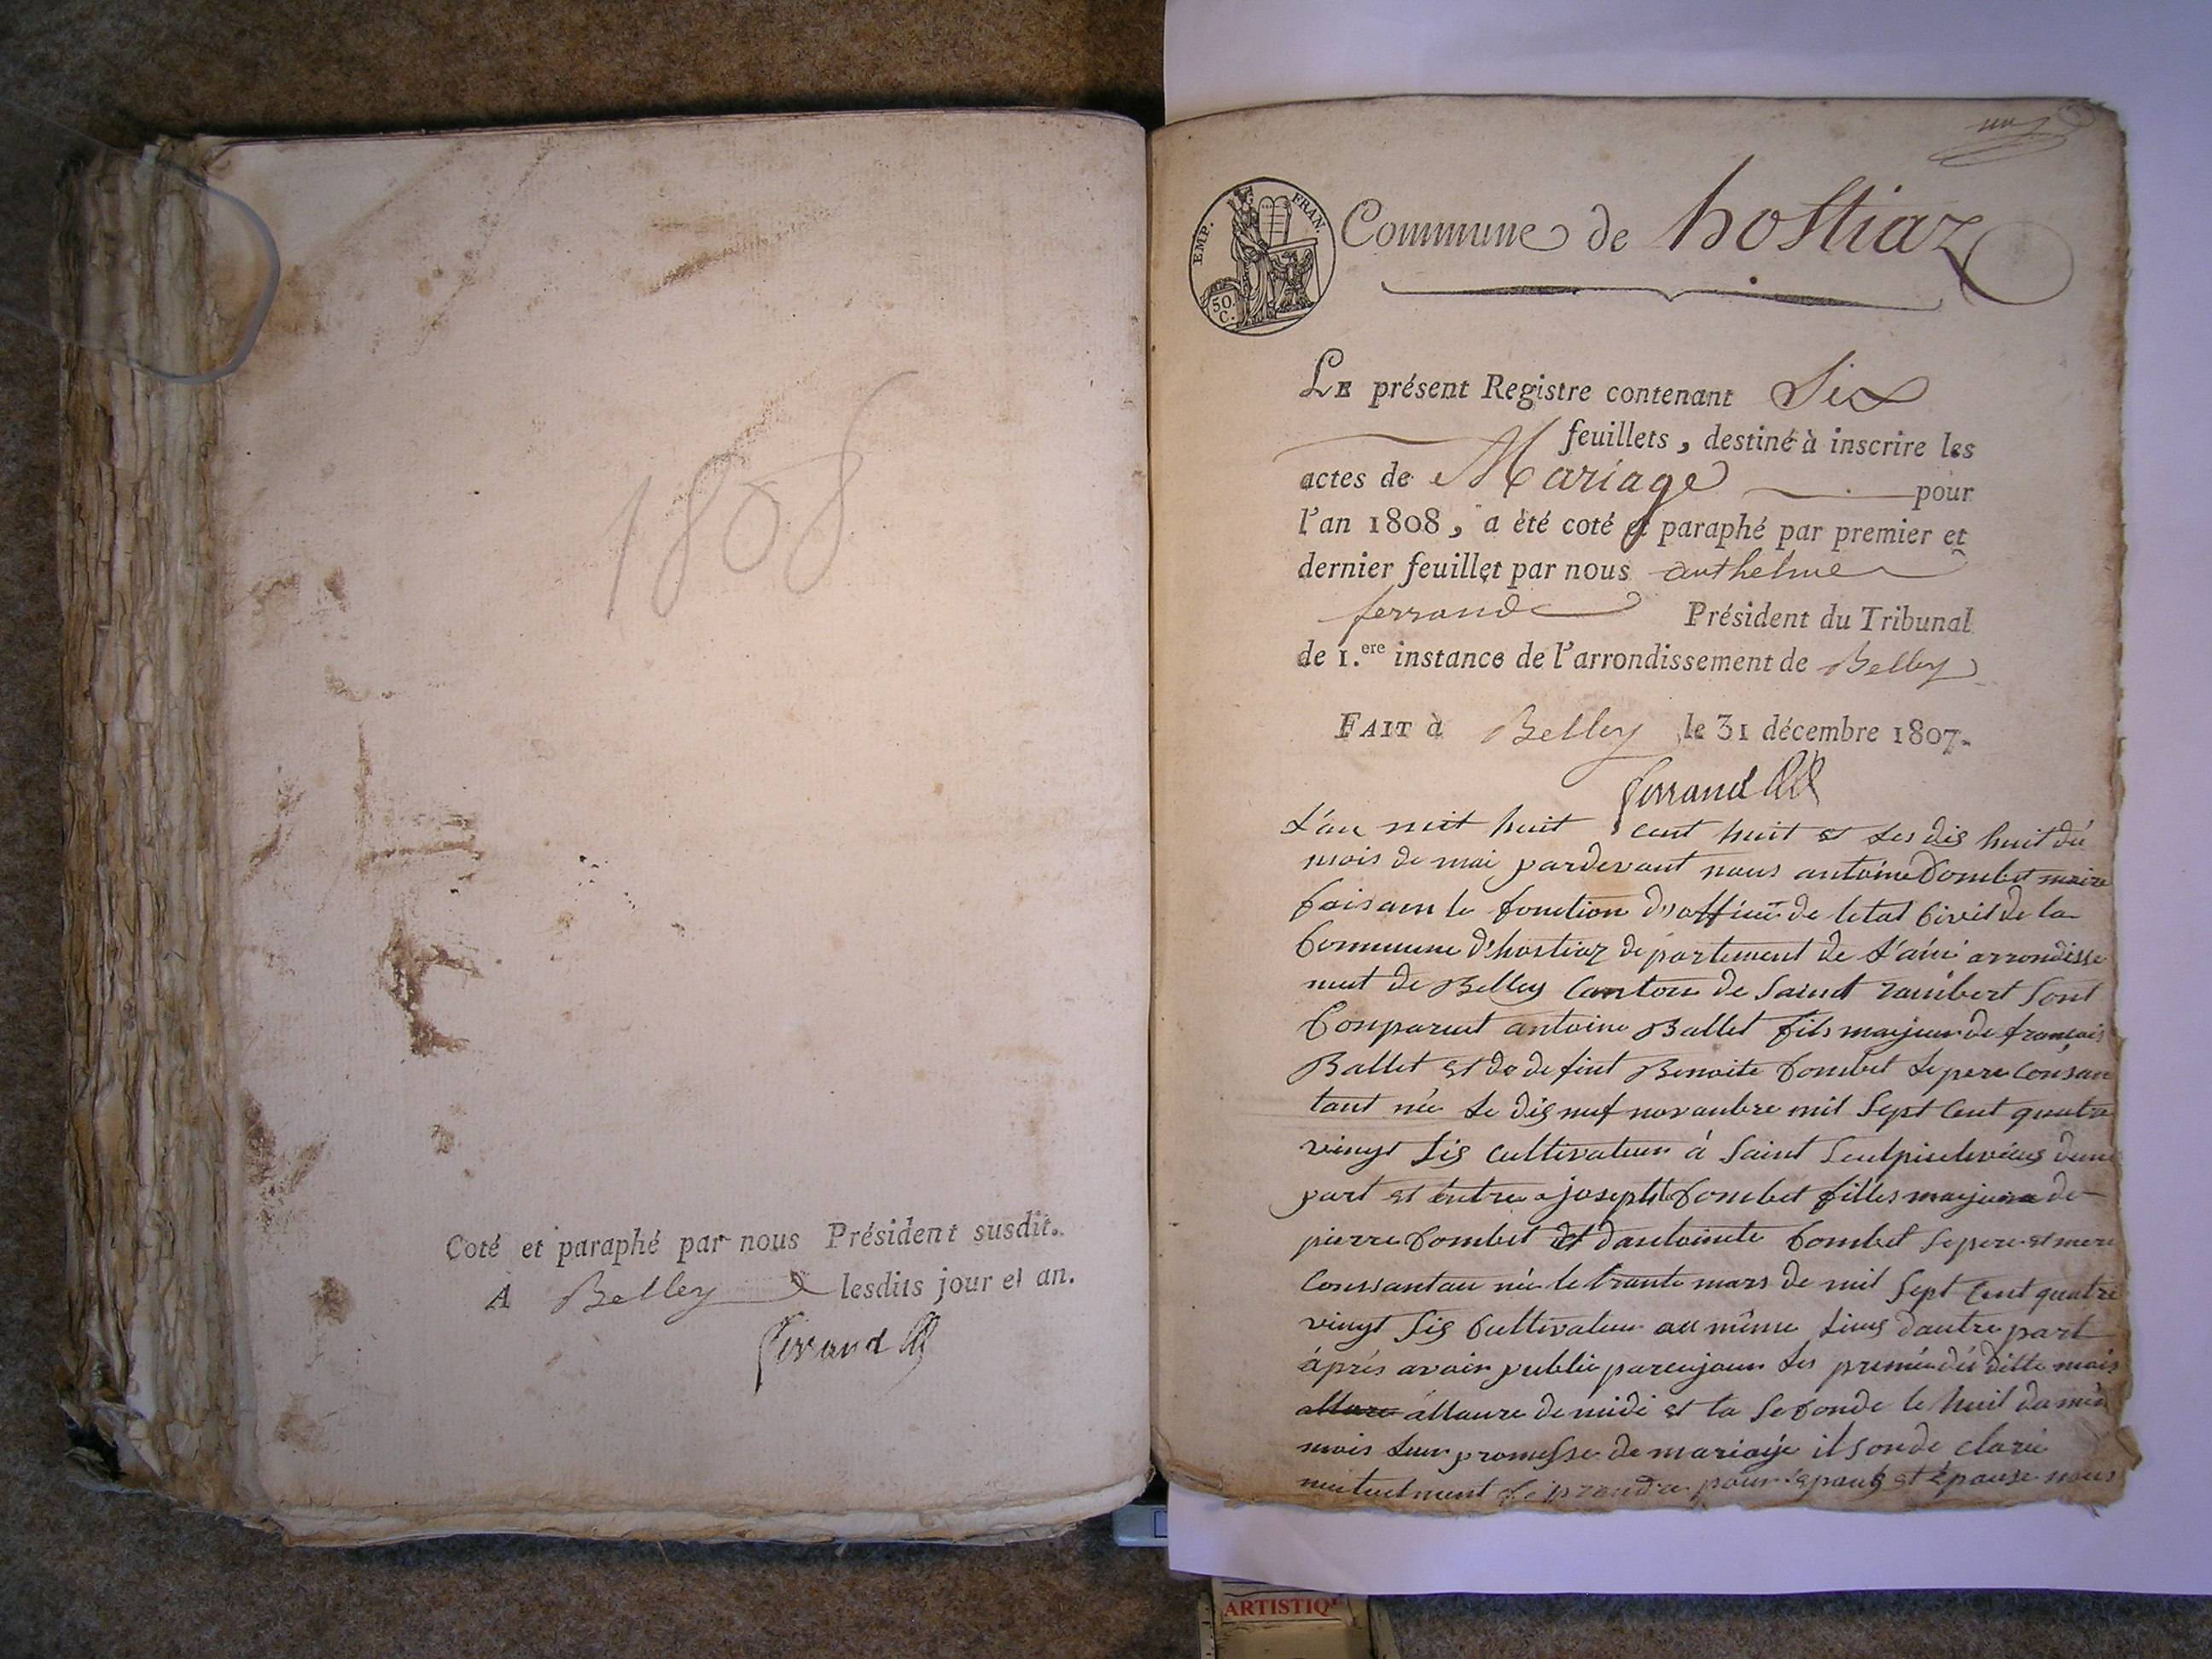 1808
Coté et paraphé par nous Président susdit.
A Belley lesdits jour et an.
Ferrand
un
EMP. FRAN.
50 C.
Commune de hostiaz
LE présent Registre contenant Six
feuillets, destiné à inscrire les
actes de Mariage pour
l'an 1808, a été coté et paraphé par premier et
dernier feuillet par nous anthelme
ferrand Président du Tribunal
de 1.ere instance de l'arrondissement de Belley
FAIT à Belley le 31 décembre 1807.
Ferrand
L'an mil huit cent huit et les dis huit du
mois de mai pardevant nous antoine Combet maire
faisan le fonction d'officié de letat Civil de la
Commune d'hostiaz departement de L'ain arrondisse
ment de Belley Canton de Saint rambert sont
Comparut antoine Ballet fils majeur de françois
Ballet et de defint Benoite Combet Le pere Consan
tant née Le dis neuf novanbre mil Sept Cent quatre
vingt Sis Cultivateur à Saint dune
part et entre josepht Combet filles majeure de
pierre Combet et dantoinete Combet Le pere et mere
Conssantan née le trante mars de mil Sept Cent quatre
vingt Sis Cultivateur au même Lieus dautre part
áprés avoir publié Les premié du ditte mois
álaure de midi et la Seconde le huit da même
mois Leur promesse de mariaije il son de claré
mutuelment se prandre pour épous et épouse nous
ARTISTIQ